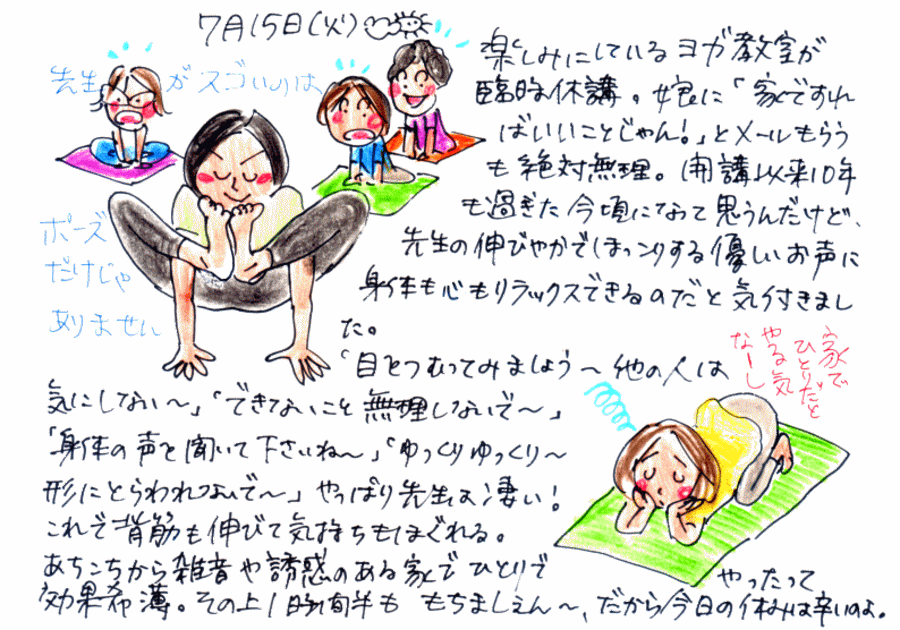 7月15日(火)
先生がスゴいのは
ポーズ
だけじゃ
ありません
楽しみにしているヨガ教室が
臨時休講。娘に「家ですれ
ばいいことじゃん!」とメールもらう
も絶対無理。開講以来10年
も過ぎた今頃になって思うんだけど、
先生の伸びやかでほっこりする優しいお声に
身体も心もリラックスできるのだと気付きまし
た。
「目をつむってみましょう〜他の人は
気にしない〜」「できないこと無理しないで〜」
「身体の声を聞いて下さいね〜」「ゆっくりゆっくり〜
形にとらわれないで〜」やっぱり先生は凄い!
これで背筋も伸びて気持ちもほぐれる。
あちこちから雑音や誘惑のある家でひとりで
やったって
効果希薄。その上1時間半ももちましぇん〜、だから今日の休みは辛いのよ。
家で
ひとりだと
やる気
なーし